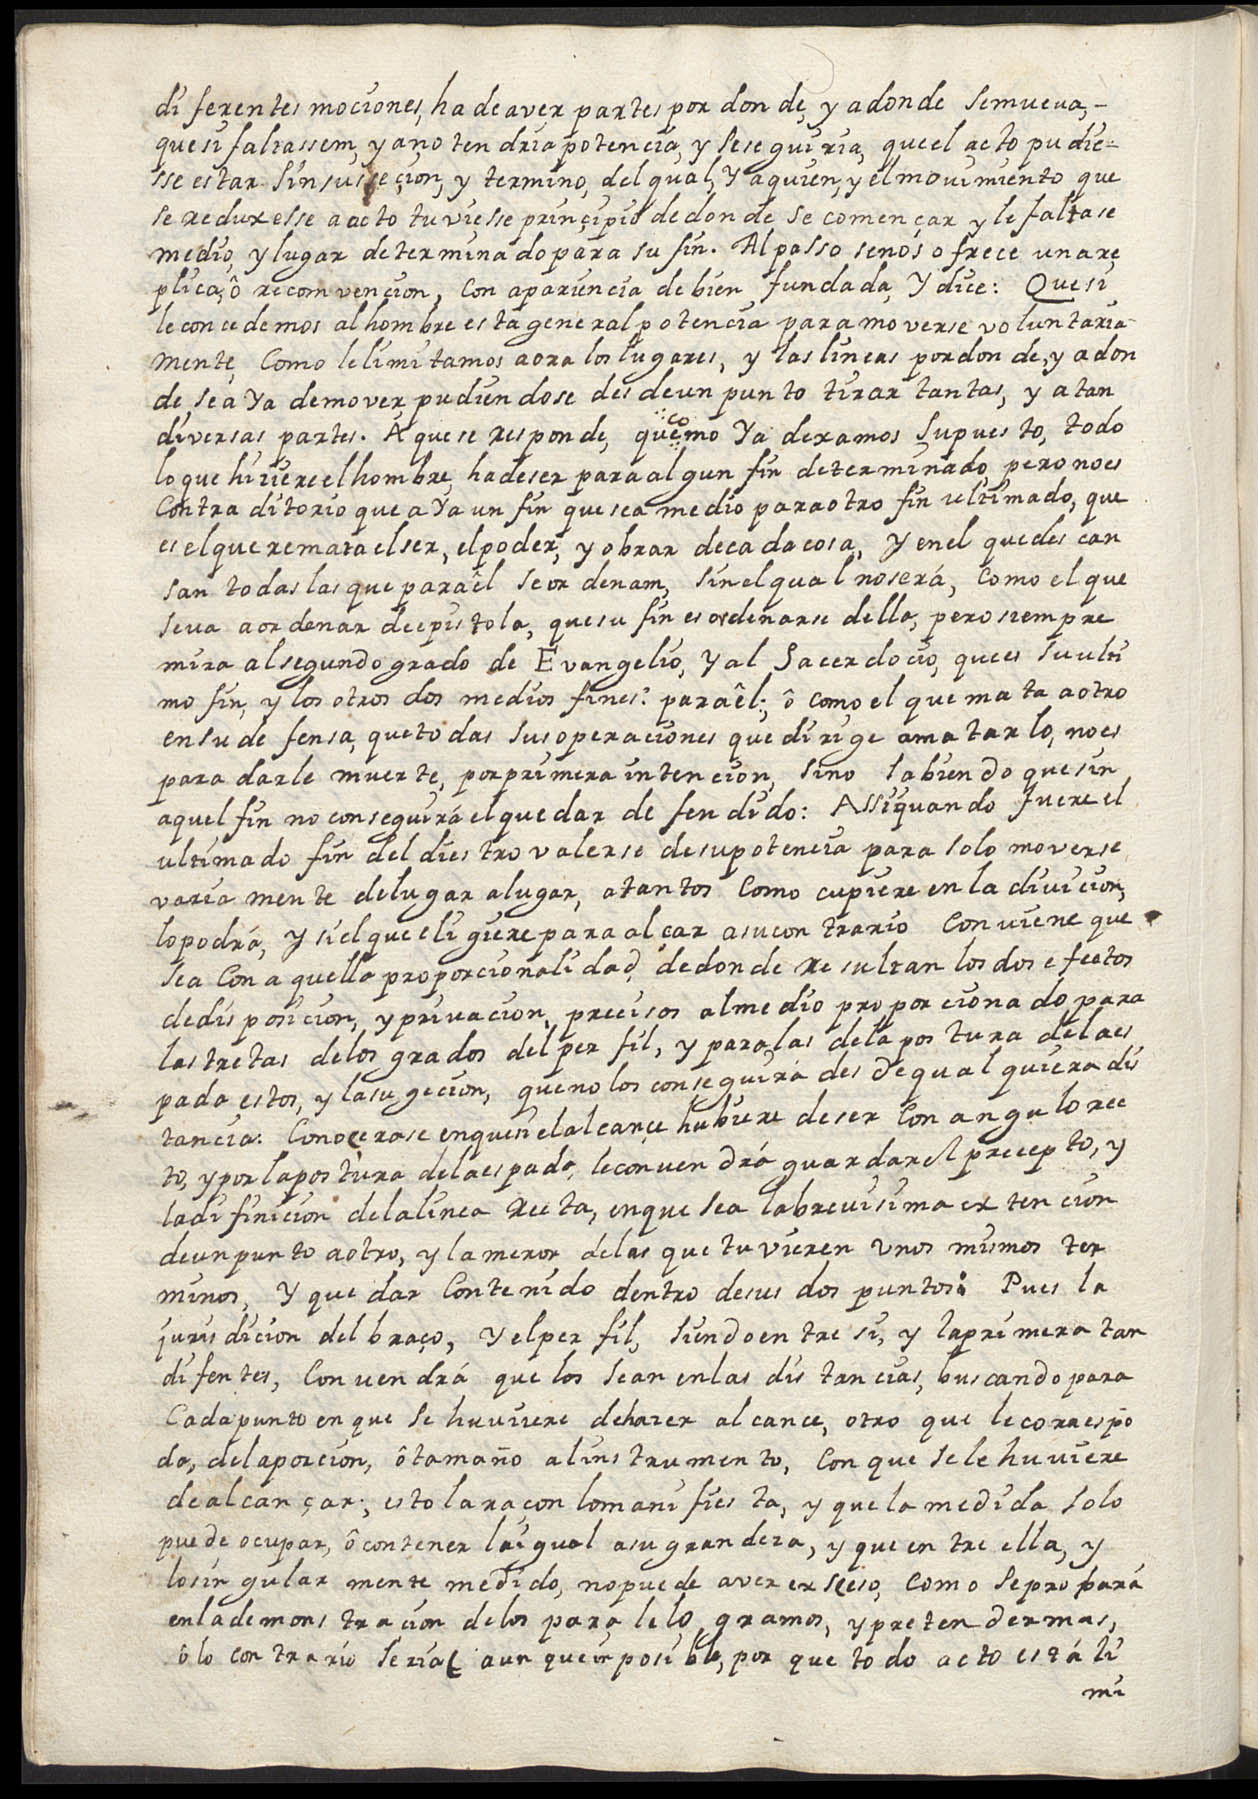 diferentes mociones, ha de aver partes por donde, y adonde se mueva, -
que si faltassem, ya no tendria potencia, y se seguiria, que el acto pudie-
sse estar sin susseçion, y termino, del qual, Y aquien, y el movimiento que
se reduxesse a acto tuviesse prinçipio de donde se començar y le faltase
medio, y lugar determinado para su fin. Al passo se nos ofrece una re
plica, ô recomvencion, Con apariencia de bien fundada, Y dice: Que si
le concedemos al hombre esta general potencia para moverse voluntaria
mente, Como le limitamos aora los lugares, y las lineas por donde, y adon
de se aYa de mover pudiendose desde un punto tirar tantas, y a tan
diversas partes. A que se responde, que como Ya dexamos supuesto, todo
lo que hiziere el hombre, ha de ser para algun fin determinado, pero no es
Contraditorio que aYa un fin que sea medio para otro fin ultimado, que
es el que remata el ser, el poder, y obrar de cada cosa, Y en el que descan
san todas las que para êl se ordenam, sin el qual no será, Como el que
se va a ordenar de epistola, que su fin es ordenarse della, pero siempre
mira al segundo grado de Evangelio, Y al Sacerdocio, que es su ulti
mo fin, y los otros dos medios fines: para êl; ô como el que mata a otro
en su defensa, que todas sus operaciones que dirige a matarlo, no es
para darle muerte, por primera intencion, sino sabiendo que sin
aquel fin no conseguirá el quedar defendido: Assi quando fuere el
ultimado fin del diestro valerse de su potencia para solo moverse
variamente de lugar a lugar, a tantos Como cupiere en la divicion,
lo podrá, Y si el que eligiere para alçar a su contrario Conviene que
sea Con aquella proporcionalidad, de donde resultan los dos efectos
de disposicion, y privacion, precisos al medio proporcionado para
las tretas de los grados del perfil, y para las de la postura de la es
pada, estos, y la sugecion, que no los conseguirá desde qualquiera dis
tancia: Conocerase en que si el alcançe hubiere de ser Con angulo rec
to, y por la postura de la espada, le convendrá guardar el precepto, y
la difinicion de la linea recta, en que sea la brevisima extencion
de un punto a otro, y la menor de las que tuvieren Unos mismos ter
minos, Y quedar Contenido dentro de sus dos puntos: Pues la
jurisdicion del braço, Y el perfil, siendo entre si, y la primera tan
difentes, Convendrá que los sean en las distancias, buscando para
Cada punto en que se huviere de hazer alcance, otro que le corrrespō
da, de la porcion, ô tamaño al instrumento, Con que se le huviere
de alcançar; esto la raçon lo manifiesta, y que la medida solo
puede ocupar, ô contener la igual a su grandeza, y que entre ella, y
lo singularmente medido, no puede aver exseso, como se probará
en la demonstracion de los paralelogramos, y pretender mas,
ô lo contrario seria aunque imposible, por que todo acto está li
mi